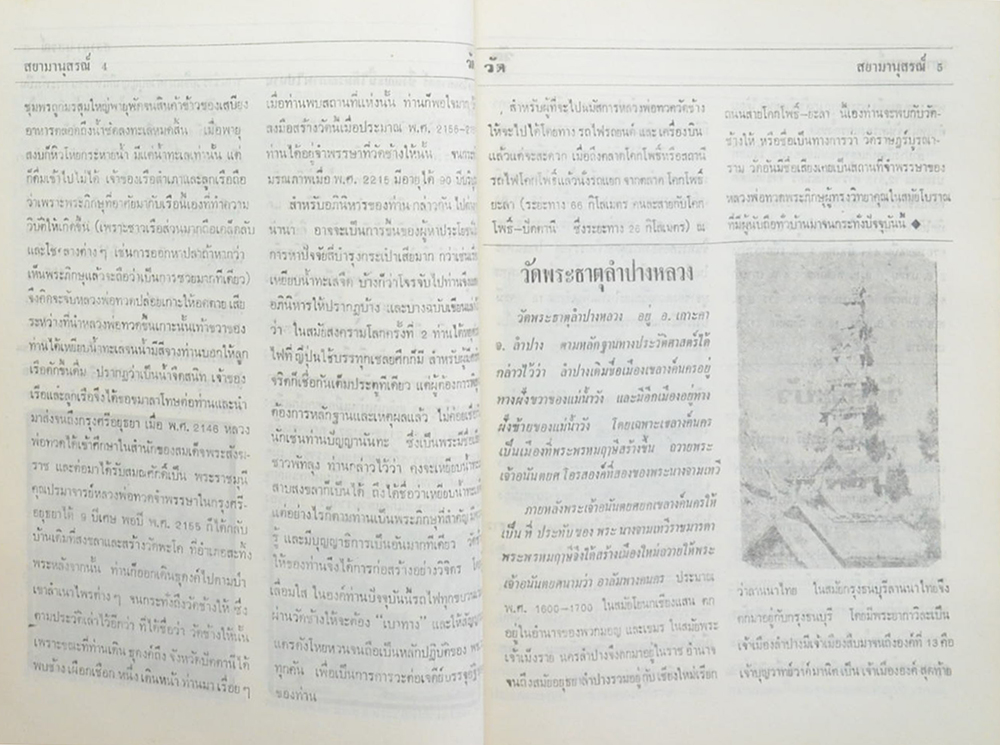 สยามานุสรณ์ 4
ชุมพรถูกมรสุมใหญ่พายุพัดจนสินค้าข้าวของเสบียง
อาหารตลอดถึงน้ำจืดลงทะเลหมดสิ้น เมื่อพายุ
สงบก็หิวโหยกระหายน้ำ มีแต่น้ำทะเลเท่านั้น แต่
ก็ดื่มเข้าไปไม่ได้ เจ้าของเรือสำเภาและลูกเรือถือ
ว่าเพราะพระภิกษุที่อาศัยมากับเรือนี้เองที่ทำความ
วิบัติให้เกิดขึ้น (เพราะชาวเรือส่วนมากถือเคล็ดลับ
และโชคลางต่างๆ เช่นการออกหาปลาถ้าหากว่า
เห็นพระภิกษุแล้วจะถือว่าเป็นการซวยมากทีเดียว)
จึงคิดจะจับหลวงพ่อทวดปล่อยเกาะให้อดตาย เสีย
ระหว่างที่นำหลวงพ่อทวดขึ้นเกาะนั้นเท้าขวาของ
ท่านได้เหยียบน้ำทะเลจนน้ำมีสีจางท่านบอกให้ลูก
เรือตักขึ้นดื่ม ปรากฏว่าเป็นน้ำจืดสนิท เจ้าของ
เรือและลูกเรือจึงได้ขอขมาลาโทษต่อท่านและนำ
มาส่งจนถึงกรุงศรีอยุธยา เมื่อ พ.ศ. 2146 หลวง
พ่อทวดได้เข้าศึกษาในสำนักของสมเด็จพระสังฆ-
ราช และต่อมาได้รับสมณศักดิ์เป็น พระราชมุนี
คุณปรมาจารย์หลวงพ่อทวดจำพรรษาในกรุงศรี-
อยุธยาได้ 9 ปีเศษ พอปี พ.ศ. 2155 ก็ได้กลับ
บ้านเดิมที่สงขลาและสร้างวัดพะโค ที่อำเภอสะทิ้ง
พระหลังจากนั้น ท่านก็ออกเดินธุดงค์ไปตามป่า
เขาลำเนาไพรต่างๆ จนกระทั่งถึงวัดช้างให้ ซึ่ง
ตามประวัติเล่าไว้อีกว่า ที่ได้ชื่อว่า วัดช้างให้นั้น
เพราะขณะที่ท่านเดิน ธุดงค์ถึง จังหวัดปัตตานีได้
พบช้าง เผือกเชือก หนึ่ง เดินหน้า ท่านมา เรื่อยๆ
เมื่อท่านพบสถานที่แห่งนั้น ท่านก็พอใจมาก
ลงมือสร้างวัดนี้เมื่อประมาณ พ.ศ. 2156
ท่านได้อยู่จำพรรษาที่วัดช้างให้นั้น
มรณภาพเมื่อ พ.ศ. 2215 มีอายุได้ 90 ปี
สำหรับอภินิหารของท่าน กล่าวกันไป
นานา อาจจะเป็นการขึ้นของผู้หาประโยชน์
การหาปัจจัยสี่บำรุงกระเป๋าเสียมาก กว่า
เหยียบน้ำทะเลจืด บ้างก็ว่าโจรจับไปท่านจึง
อภินิหารให้ปรากฏบ้าง และบางฉบับเขียน
ว่า ในสมัยสงครามโลกครั้งที่ 2 ท่านได้
ไฟที่ญี่ปุ่นใช้บรรทุกเชลยศึกก็มี สำหรับ
จริตก็เชื่อกันเต็มประตูทีเดียว แต่ผู้ต้องการ
ต้องการหลักฐานและเหตุผลแล้ว ไม่ค่อย
นักเช่นท่านปัญญานันทะ ซึ่งเป็นพระมีชื่อ
ชาวพัทลุง ท่านกล่าวไว้ว่า คงจะเหยียบน้ำ
สาบสงขลาก็เป็นได้ ถึงได้ชื่อว่าเหยียบน้ำ
แต่อย่างไรก็ตามท่านเป็นพระภิกษุที่สำคัญ
รู้ และมีบุญญาธิการเป็นอันมากทีเดียว
ให้ของท่านจึงได้การก่อสร้างอย่างวิจิตร
เลื่อมใส ในองค์ท่านปัจจุบันนี้รถไฟทุกขบวน
ผ่านวัดช้างให้จะต้อง “เบาทาง” และให้
แตรดังไหยหวนจนถือเป็นหลักปฏิบัติของ
ทุกคัน เพื่อเป็นการการวะต่อเจดีย์บรรจุอัฐิ
ของท่าน
วัด
สยามานุสรณ์ 5
สำหรับผู้ที่จะไปนมัสการหลวงพ่อทวดวัดช้าง
ให้จะไปได้โดยทาง รถไฟรถยนต์ และ เครื่องบิน
แล้วแต่จะสะดวก เมื่อถึงตลาดโคกโพธิ์หรือสถานี
รถไฟโคกโพธิ์แล้วนั่งรถแยก จากตลาด โคกโพธิ์
ยะลา (ระยะทาง 66 กิโลเมตร คนละสายกับโคก
โพธิ์-ปัตตานี ซึ่งระยะทาง 26 กิโลเมตร) ณ
ถนนสายโคกโพธิ์-ยะลา นี้เองท่านจะพบกับวัด-
ช้างให้ หรือชื่อเป็นทางการว่า วัดราษฎร์บูรณา-
ราม วัดอันมีชื่อเสียงเคยเป็นสถานที่จำพรรษาของ
หลวงพ่อทวดพระภิกษุผู้ทรงวิทยาคุณในสมัยโบราณ
ที่มีผู้นับถือทั่วบ้านมาจนกระทั่งปัจจุบันนี้ ◆
วัดพระธาตุลำปางหลวง
วัดพระธาตุลำปางหลวง อยู่ อ. เกาะคา
จ. ลำปาง ตามหลักฐานทางประวัติศาสตร์ได้
กล่าวไว้ว่า ลำปางเดิมชื่อเมืองเขลางค์นครอยู่
ทางฝั่งขวาของแม่น้ำวัง และมีอีกเมืองอยู่ทาง
ฝั่งซ้ายของแม่น้ำวัง โดยเฉพาะเขลางค์นคร
เป็นเมืองที่พระพรหมฤาษีสร้างขึ้น ถวายพระ
เจ้าอนันตยศ โอรสองค์ที่สองของพระนางจามเทวี
ภายหลังพระเจ้าอนันตยศยกเขลางค์นครให้
เป็น ที่ ประทับ ของ พระ นางจามเทวีราชมารดา
พระพรหมฤาษีจึงได้สร้างเมืองใหม่ถวายให้พระ
เจ้าอนันตยศนามว่า อาลัมพางคนคร ประมาณ
พ.ศ. 1600-1700 ในสมัยโยนกเชียงแสน ตก
อยู่ในอำนาจของพวกมอญ และเขมร ในสมัยพระ
เจ้าเม็งราย นครลำปางจึงตกมาอยู่ในราช อำนาจ
จนถึงสมัยอยุธยาลำปางรวมอยู่กับ เชียงใหม่เรียก
ว่าลานนาไทย ในสมัยกรุงธนบุรีลานนาไทยจึง
ตกมาอยู่กับกรุงธนบุรี โดยมีพระยากาวิละเป็น
เจ้าเมืองลำปางมีเจ้าเมืองสืบมาจนถึงองค์ที่ 13 คือ
เจ้าบุญวาทย์วงค์มานิต เป็น เจ้าเมืององค์ สุดท้าย